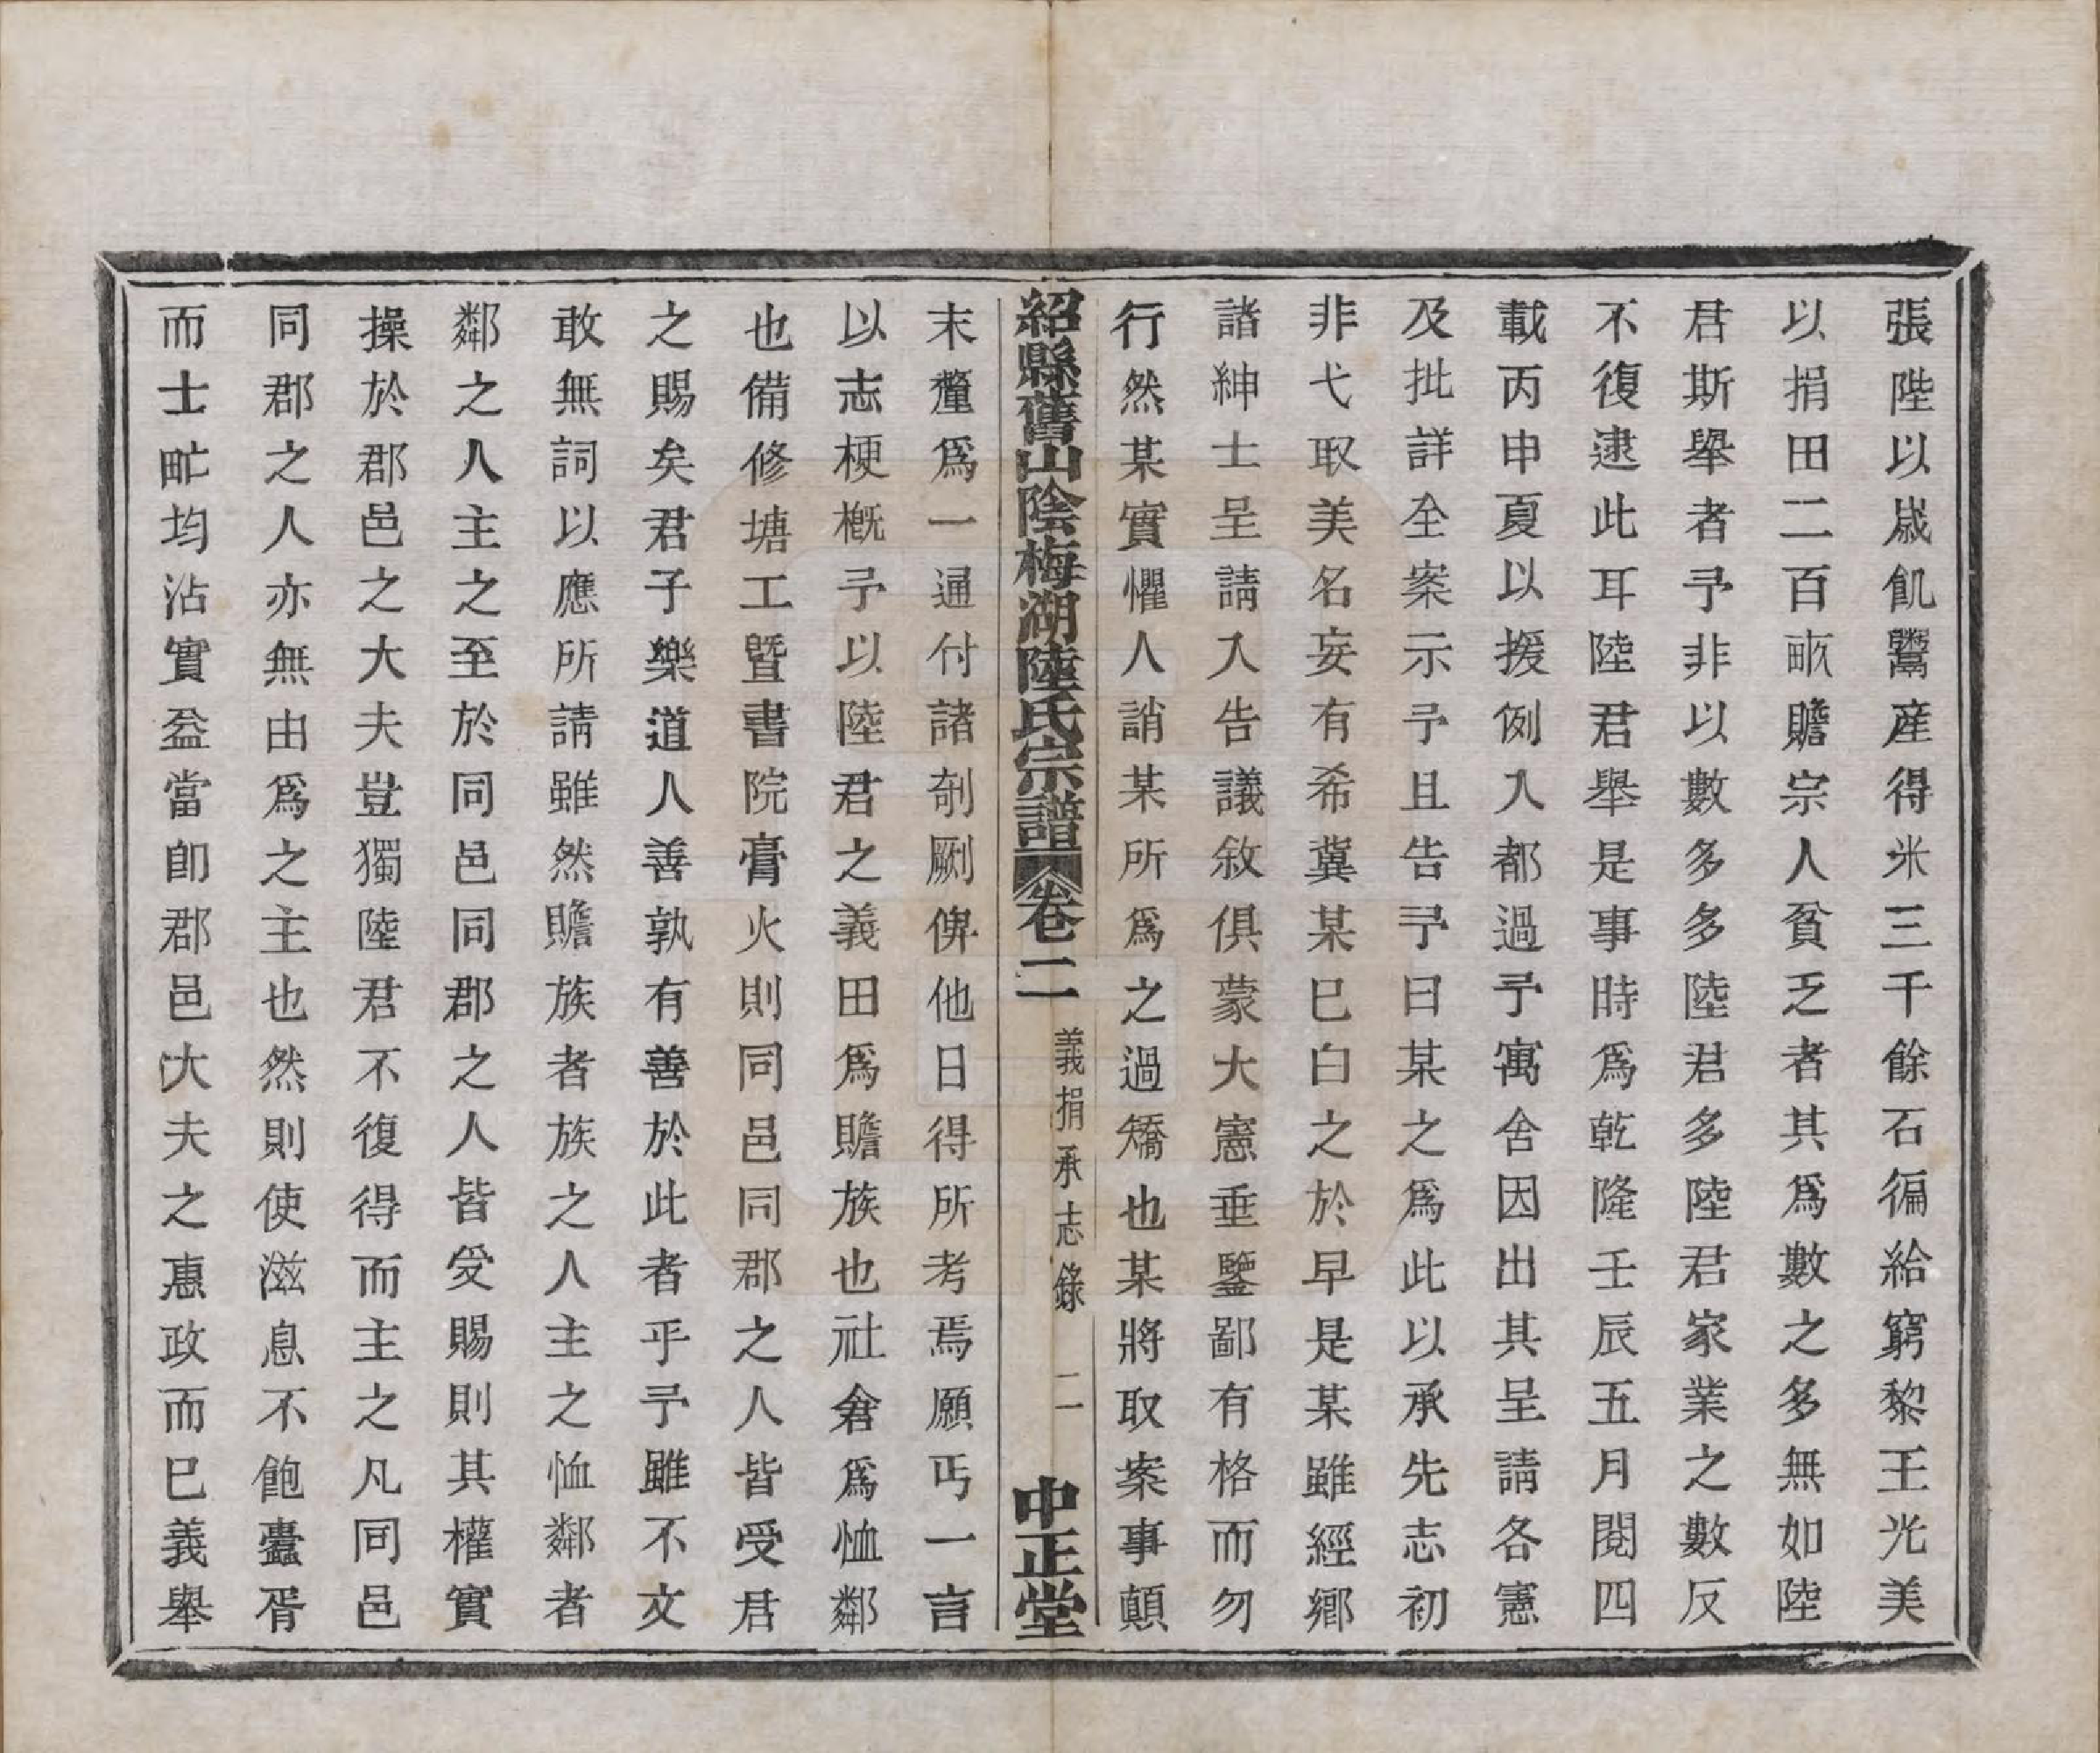 張陛以歲飢鬻產得米三千餘石徧給窮黎王光美
以捐田二百畝贍宗人貧乏者其爲數之多無如陸
君斯舉者予非以數多多陸君多陸君家業之數反
不復逮此耳陸君舉是事時爲乾隆壬辰五月閱四
載丙申夏以援例入都過予寓舍因出其呈請各憲
及批詳全案示予且告予曰某之爲此以承先志初
非弋取美名妄有希冀某巳白之於早是某雖經鄉
諸紳士呈請入告議敘俱蒙大憲垂鑒鄙有格而勿
行然某實懼人誚某所爲之過矯也某將取案事顛
紹縣舊山陰梅湖陸氏宗譜卷二 義捐承志錄 二 中正堂
末釐爲一通付諸剞劂俾他日得所考焉願丐一言
以志梗槪予以陸君之義田爲贍族也社倉爲恤鄰
也備修塘工暨書院膏火則同邑同郡之人皆受君
之賜矣君子樂道人善孰有善於此者乎予雖不文
敢無詞以應所請雖然贍族者族之人主之恤鄰者
鄰之人主之至於同邑同郡之人皆受賜則其權實
操於郡邑之大夫豈獨陸君不復得而主之凡同邑
同郡之人亦無由爲之主也然則使滋息不飽蠹胥
而士甿均沾實益當卽郡邑大夫之惠政而巳義舉